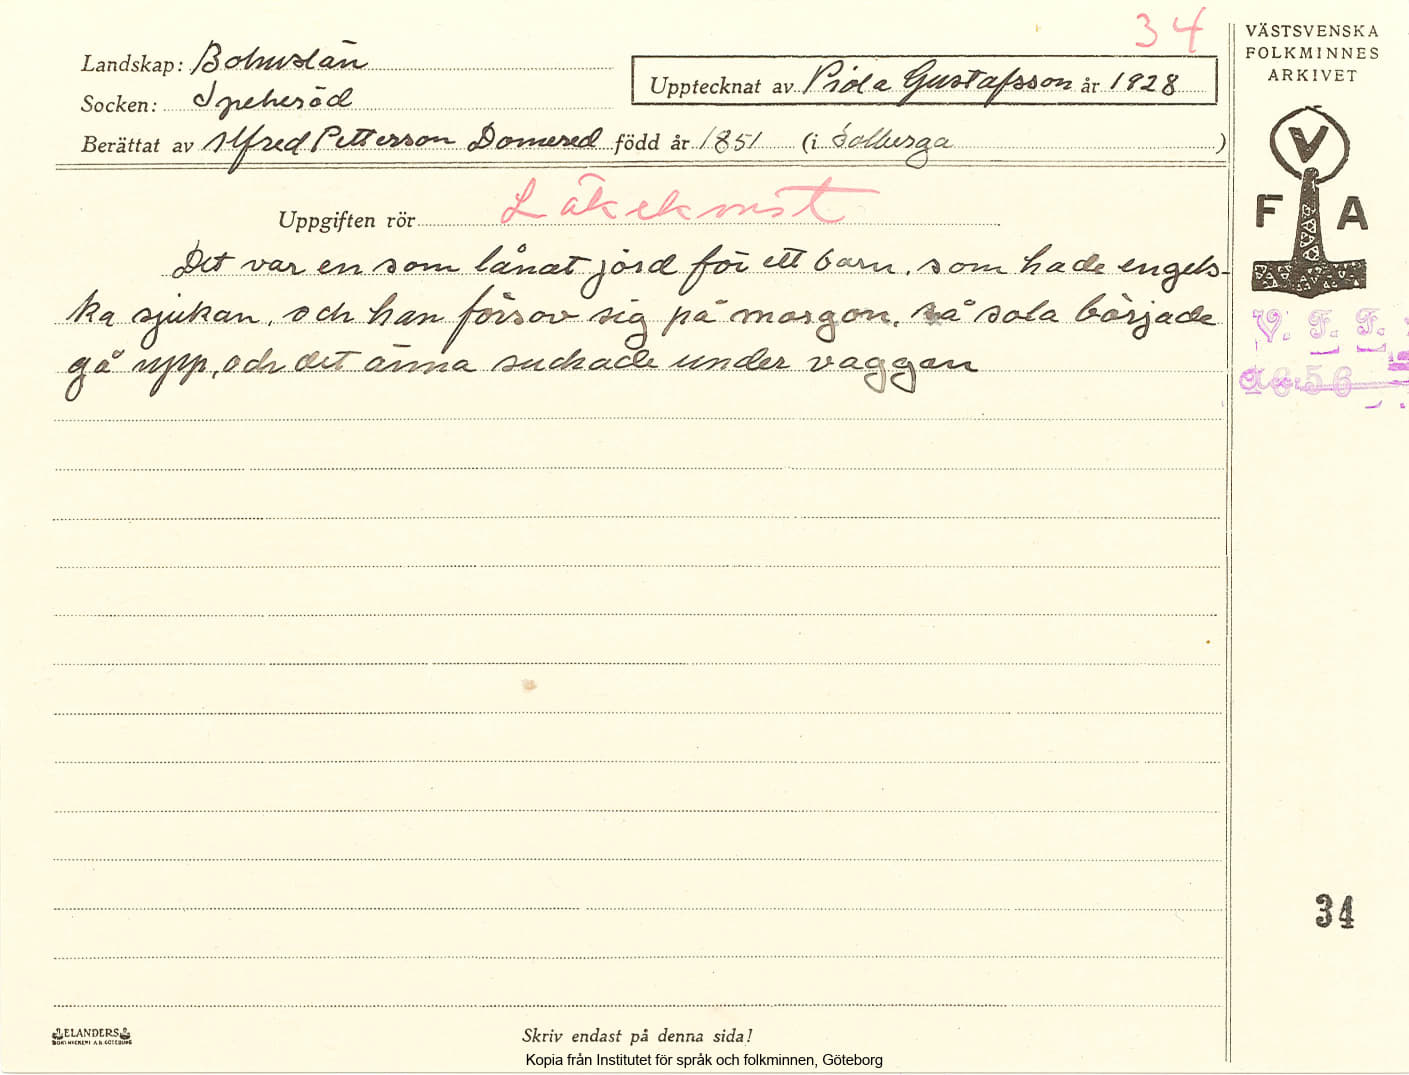 34
Landskap: Bohuslän
Socken: Spekeröd
Upptecknat av Pida Gustafsson år 1928
Berättat av Alfred Petterson Domered född år 1851 (i Solberga )
Uppgiften rör Läkekonst
Det var en som lånat jord för ett barn, som hade engels-
ka sjukan, och han försov sig på morgon, så sola började
gå upp, och det änna suckade under vaggan
VÄSTSVENSKA
FOLKMINNES
ARKIVET
V
F A
V. F. F.
1656
34
ELANDERS
BOKTRYCKERI A.B. GÖTEBORG
Skriv endast på denna sida!
Kopia från Institutet för språk och folkminnen, Göteborg